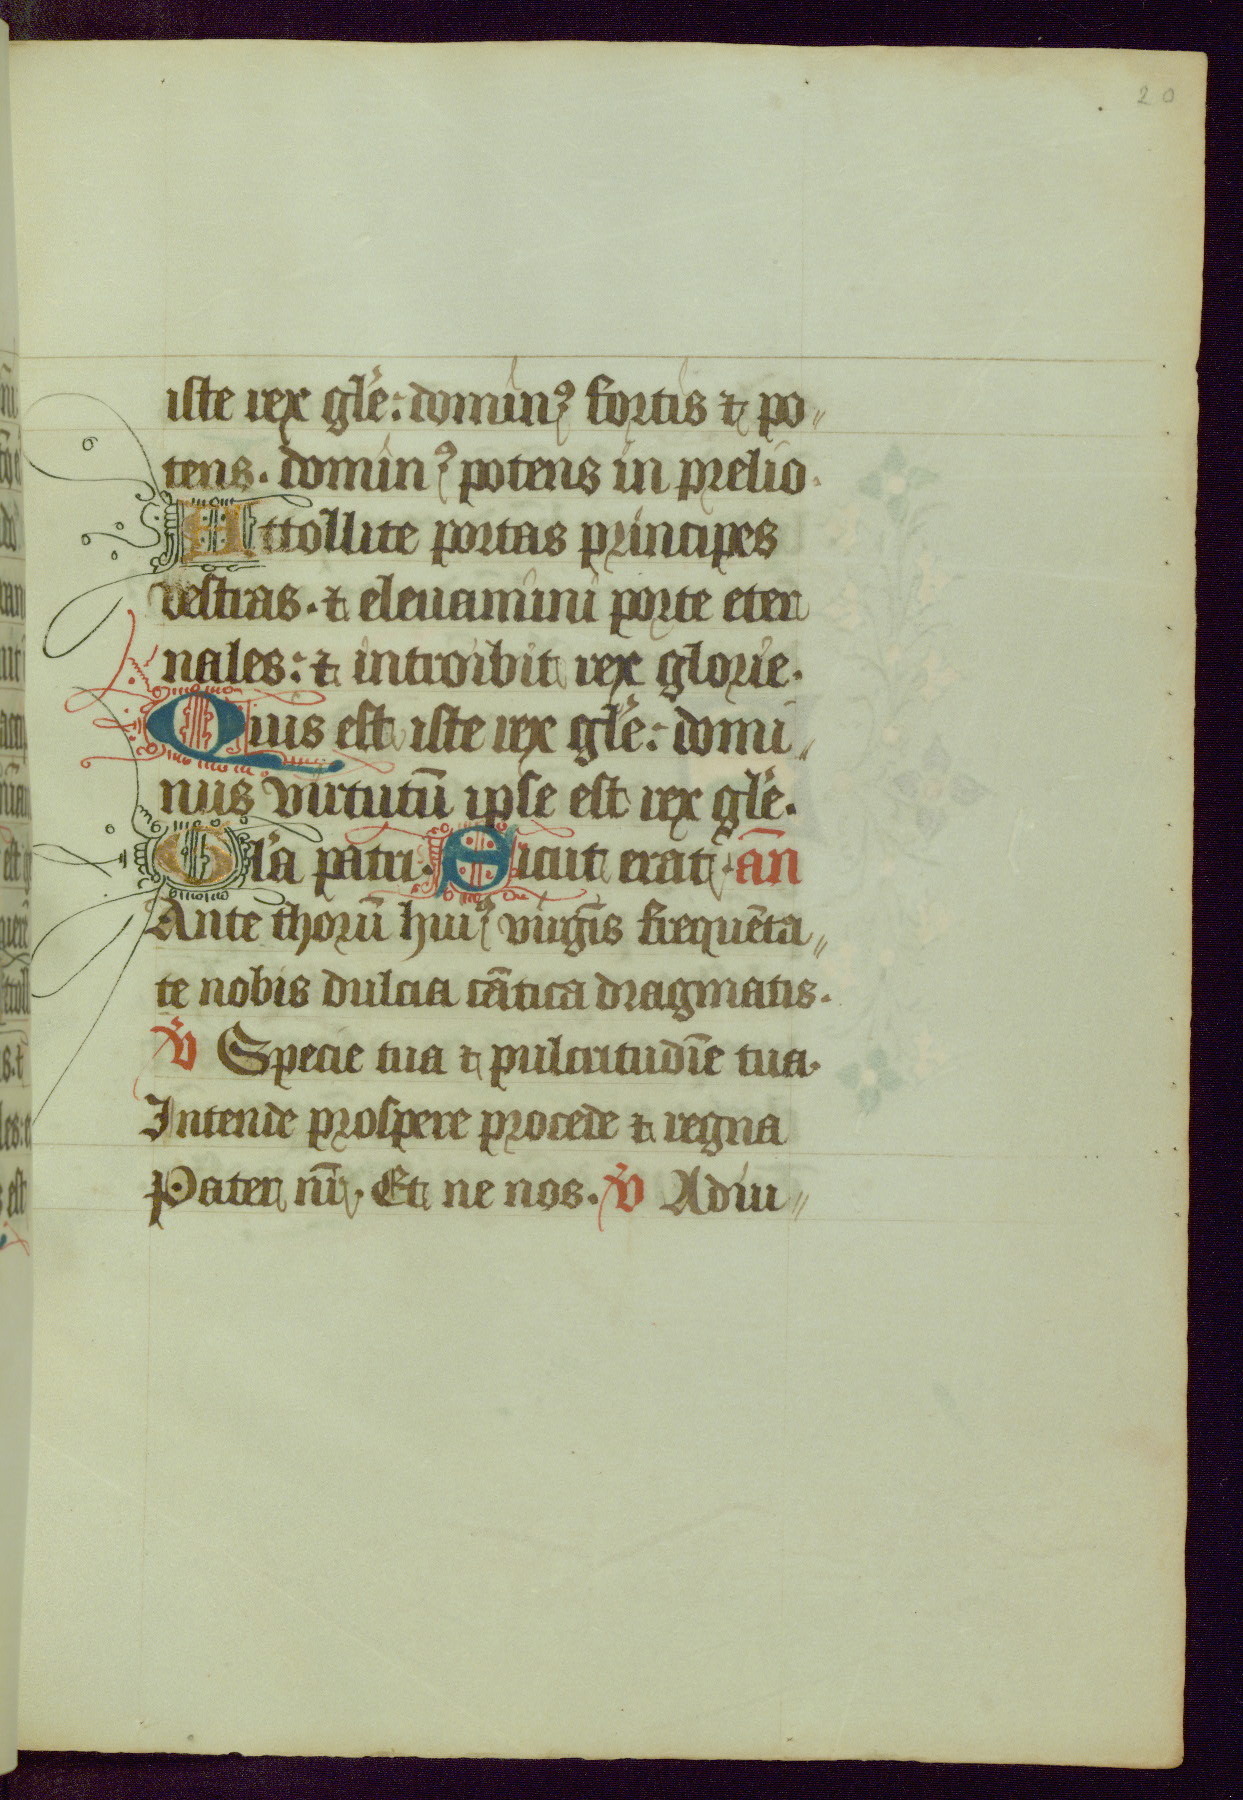 20
iste rex gl'e: domin⁹ fortis ⁊ po〃
tens. domin⁹ potens in prelio.
Attollite portas principes
vestras. ⁊ eleuamini porte eter
nales: ⁊ introibit rex glorie.
Quis est iste rex gl'e: domi〃
nus virtutū ipse est rex gl'e.
Gl'a patri. Sicut erat. an̄
Ante thorū hui⁹ virgīs frequēta〃
te nobis dulcia cātica dragmatis.
V̓ Specie tua ⁊ pulcritudīe tua.
Intende prospere procede ⁊ regna
Pater nr̄. Et ne nos. V̓ Adiu〃